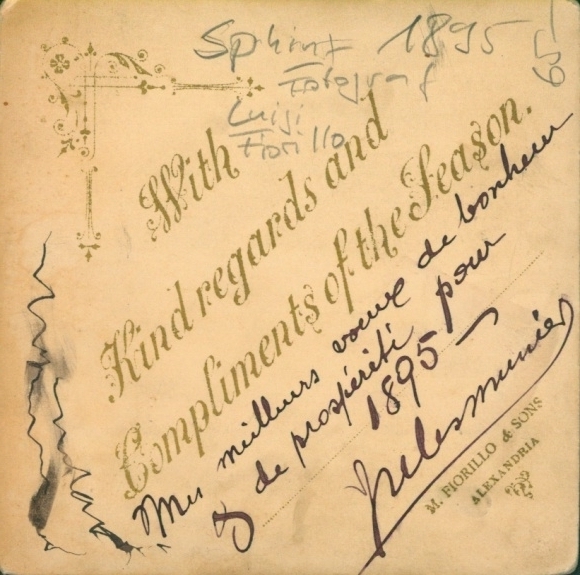 Sphinx 1895
65!
Fotograf
Luigi
Fiorillo
With
Kind regards and
Compliments of the Season.
Mes meilleurs voeux de bonheur
& de prospérité pour
1895 —
Jules Munier
M. FIORILLO & SONS
ALEXANDRIA